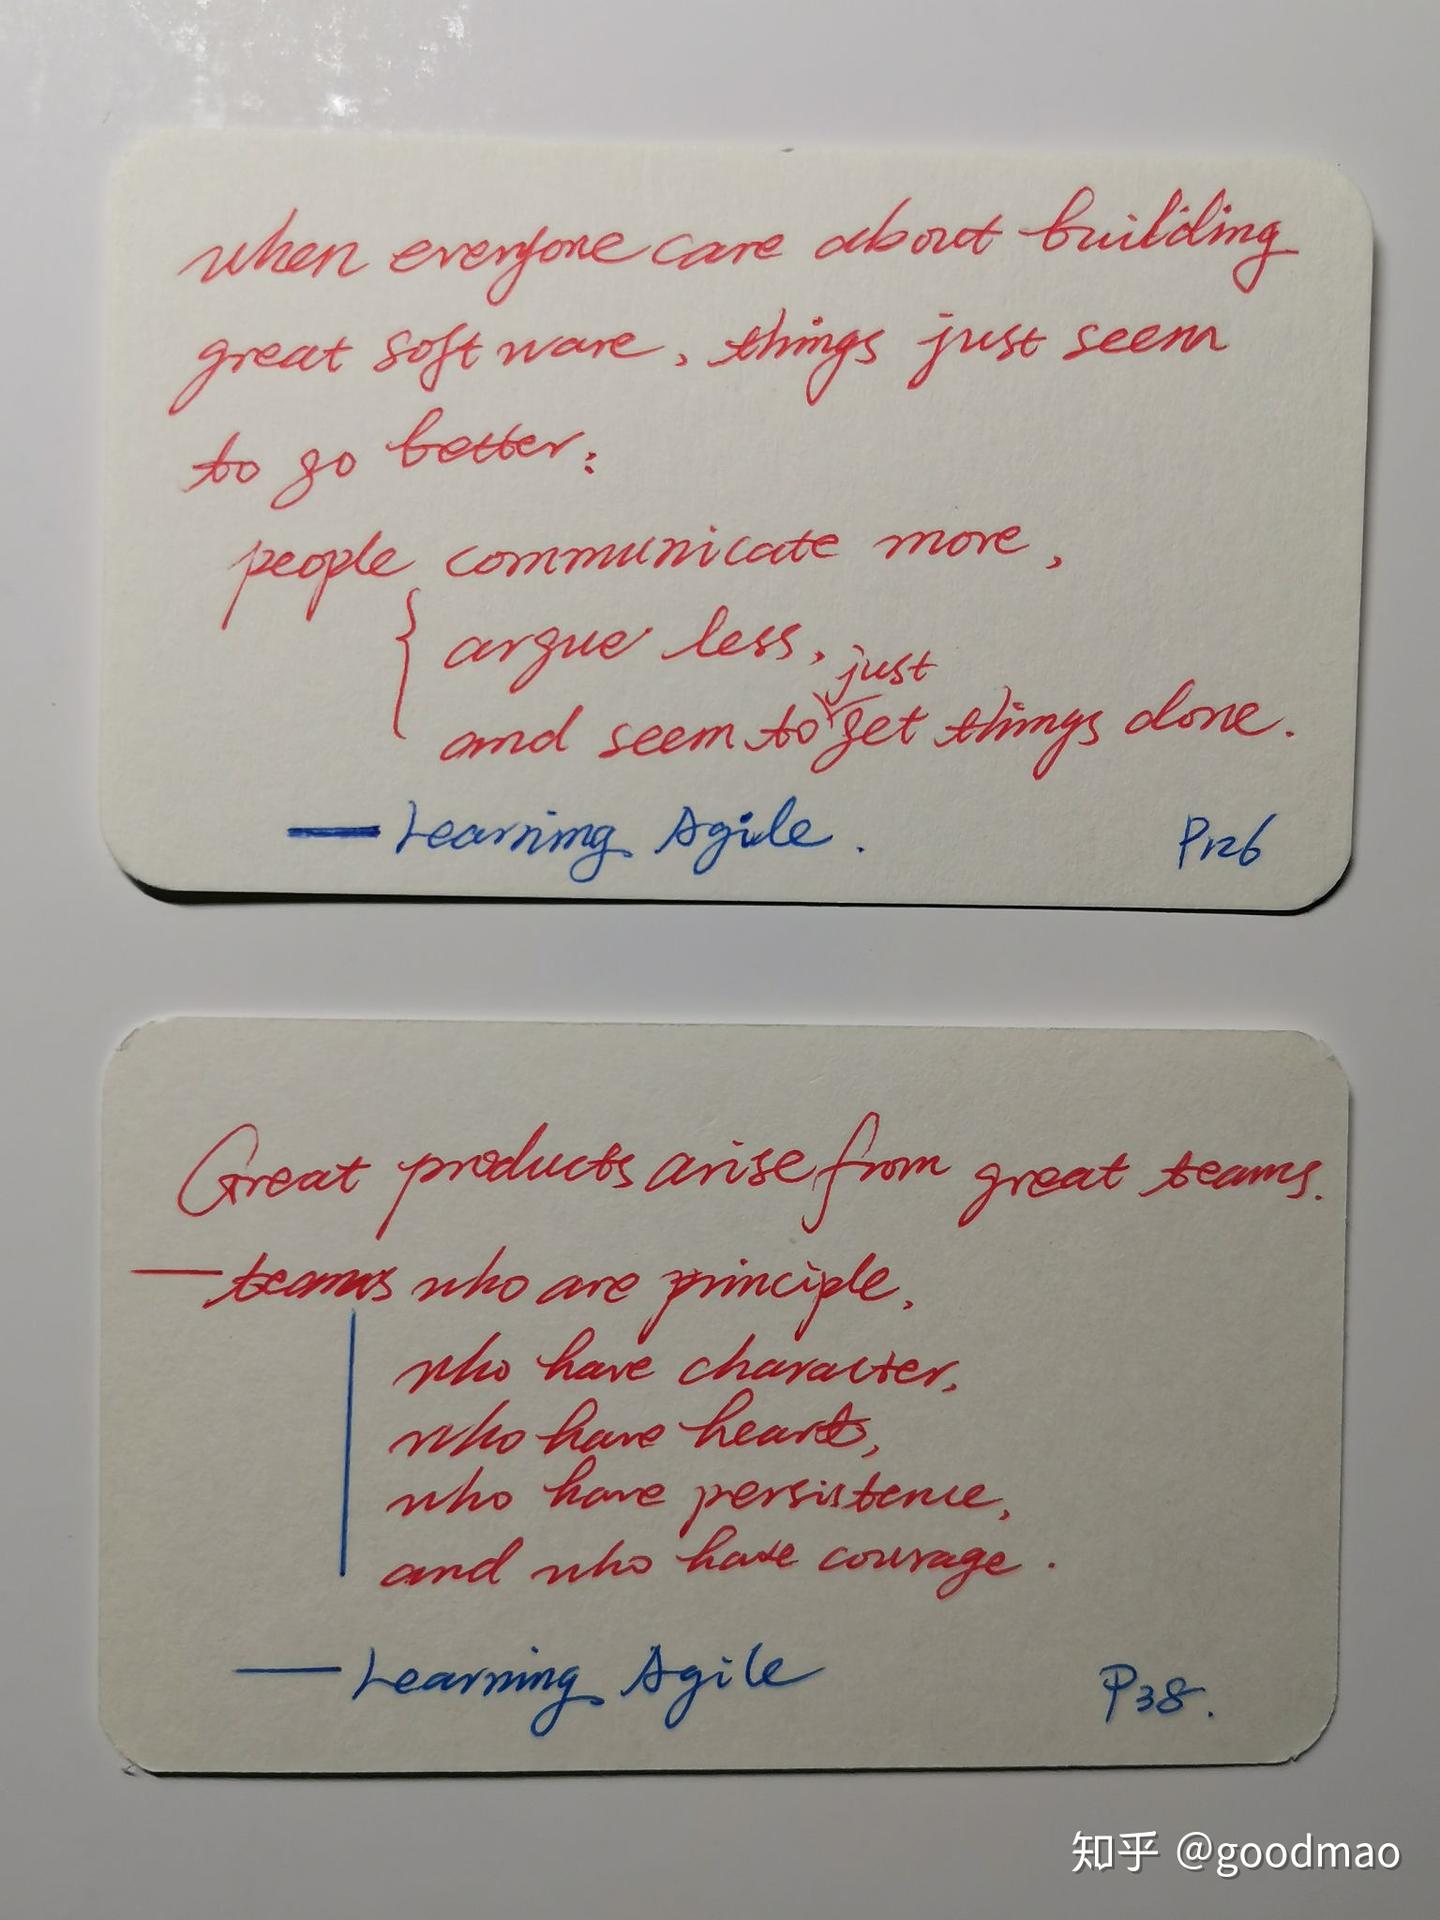 when everyone care about building
great software, things just seem
to go better:
people communicate more,
argue less,
just
and seem to get things done.
— Learning Agile.
P126
Great products arise from great teams.
— teams who are principle,
who have character,
who have heart,
who have persistence,
and who have courage.
— Learning Agile
P38.
知乎 @goodmao